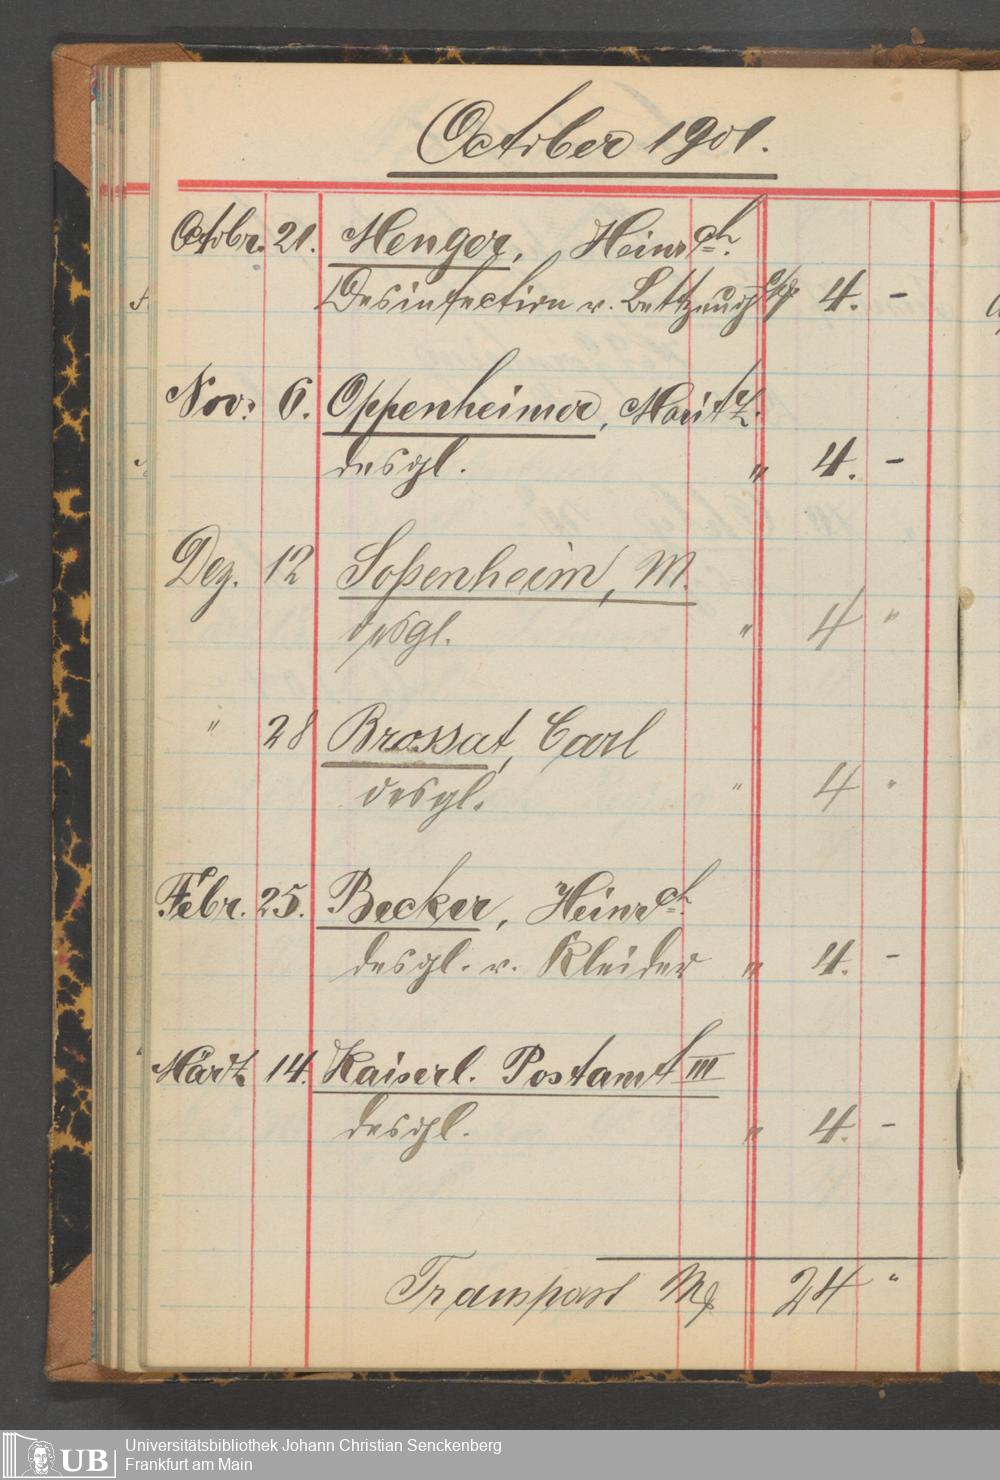 October 1901.
Octobr. 21. Menger, Heinrch.
Desinfection v. Bettzeug M 4. –
Nov. 6. Oppenheimer, Moritz.
desgl. " 4. –
Dez. 12 Sopenheim, M.
desgl. " 4 "
" 28 Brossat, Carl
desgl. " 4 "
Febr. 25. Becker, Heinrch.
desgl. v. Kleider " 4. –
März 14. Kaiserl. Postamt III
desgl. " 4. –
Transport M 24 "
UB
Universitätsbibliothek Johann Christian Senckenberg
Frankfurt am Main